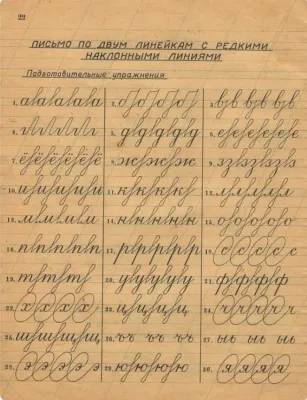 22
ПИСЬМО ПО ДВУМ ЛИНЕЙКАМ С РЕДКИМИ
НАКЛОННЫМИ ЛИНИЯМИ
Подготовительные упражнения
1. а а а а а 2. б б б б 3. в в в в
4. г г г г 5. д д д д д 6. е е е е е
7. ё ё ё ё ё 8. ж ж ж ж 9. з з з з з
10. и и и и и 11. к к к к 12. л л л л
13. м м м м 14. н н н н н 15. о о о о о
16. п п п п п 17. р р р р р 18. с с с с с
19. т т т т 20. у у у у у 21. ф ф ф ф
22. х х х х 23. ц ц ц ц 24. ч ч ч ч
25. ш ш ш ш 26. ъ ъ ъ ъ ъ 27. ыь ыь ыь
28. э э э э э 29. ю ю ю ю 30. я я я я